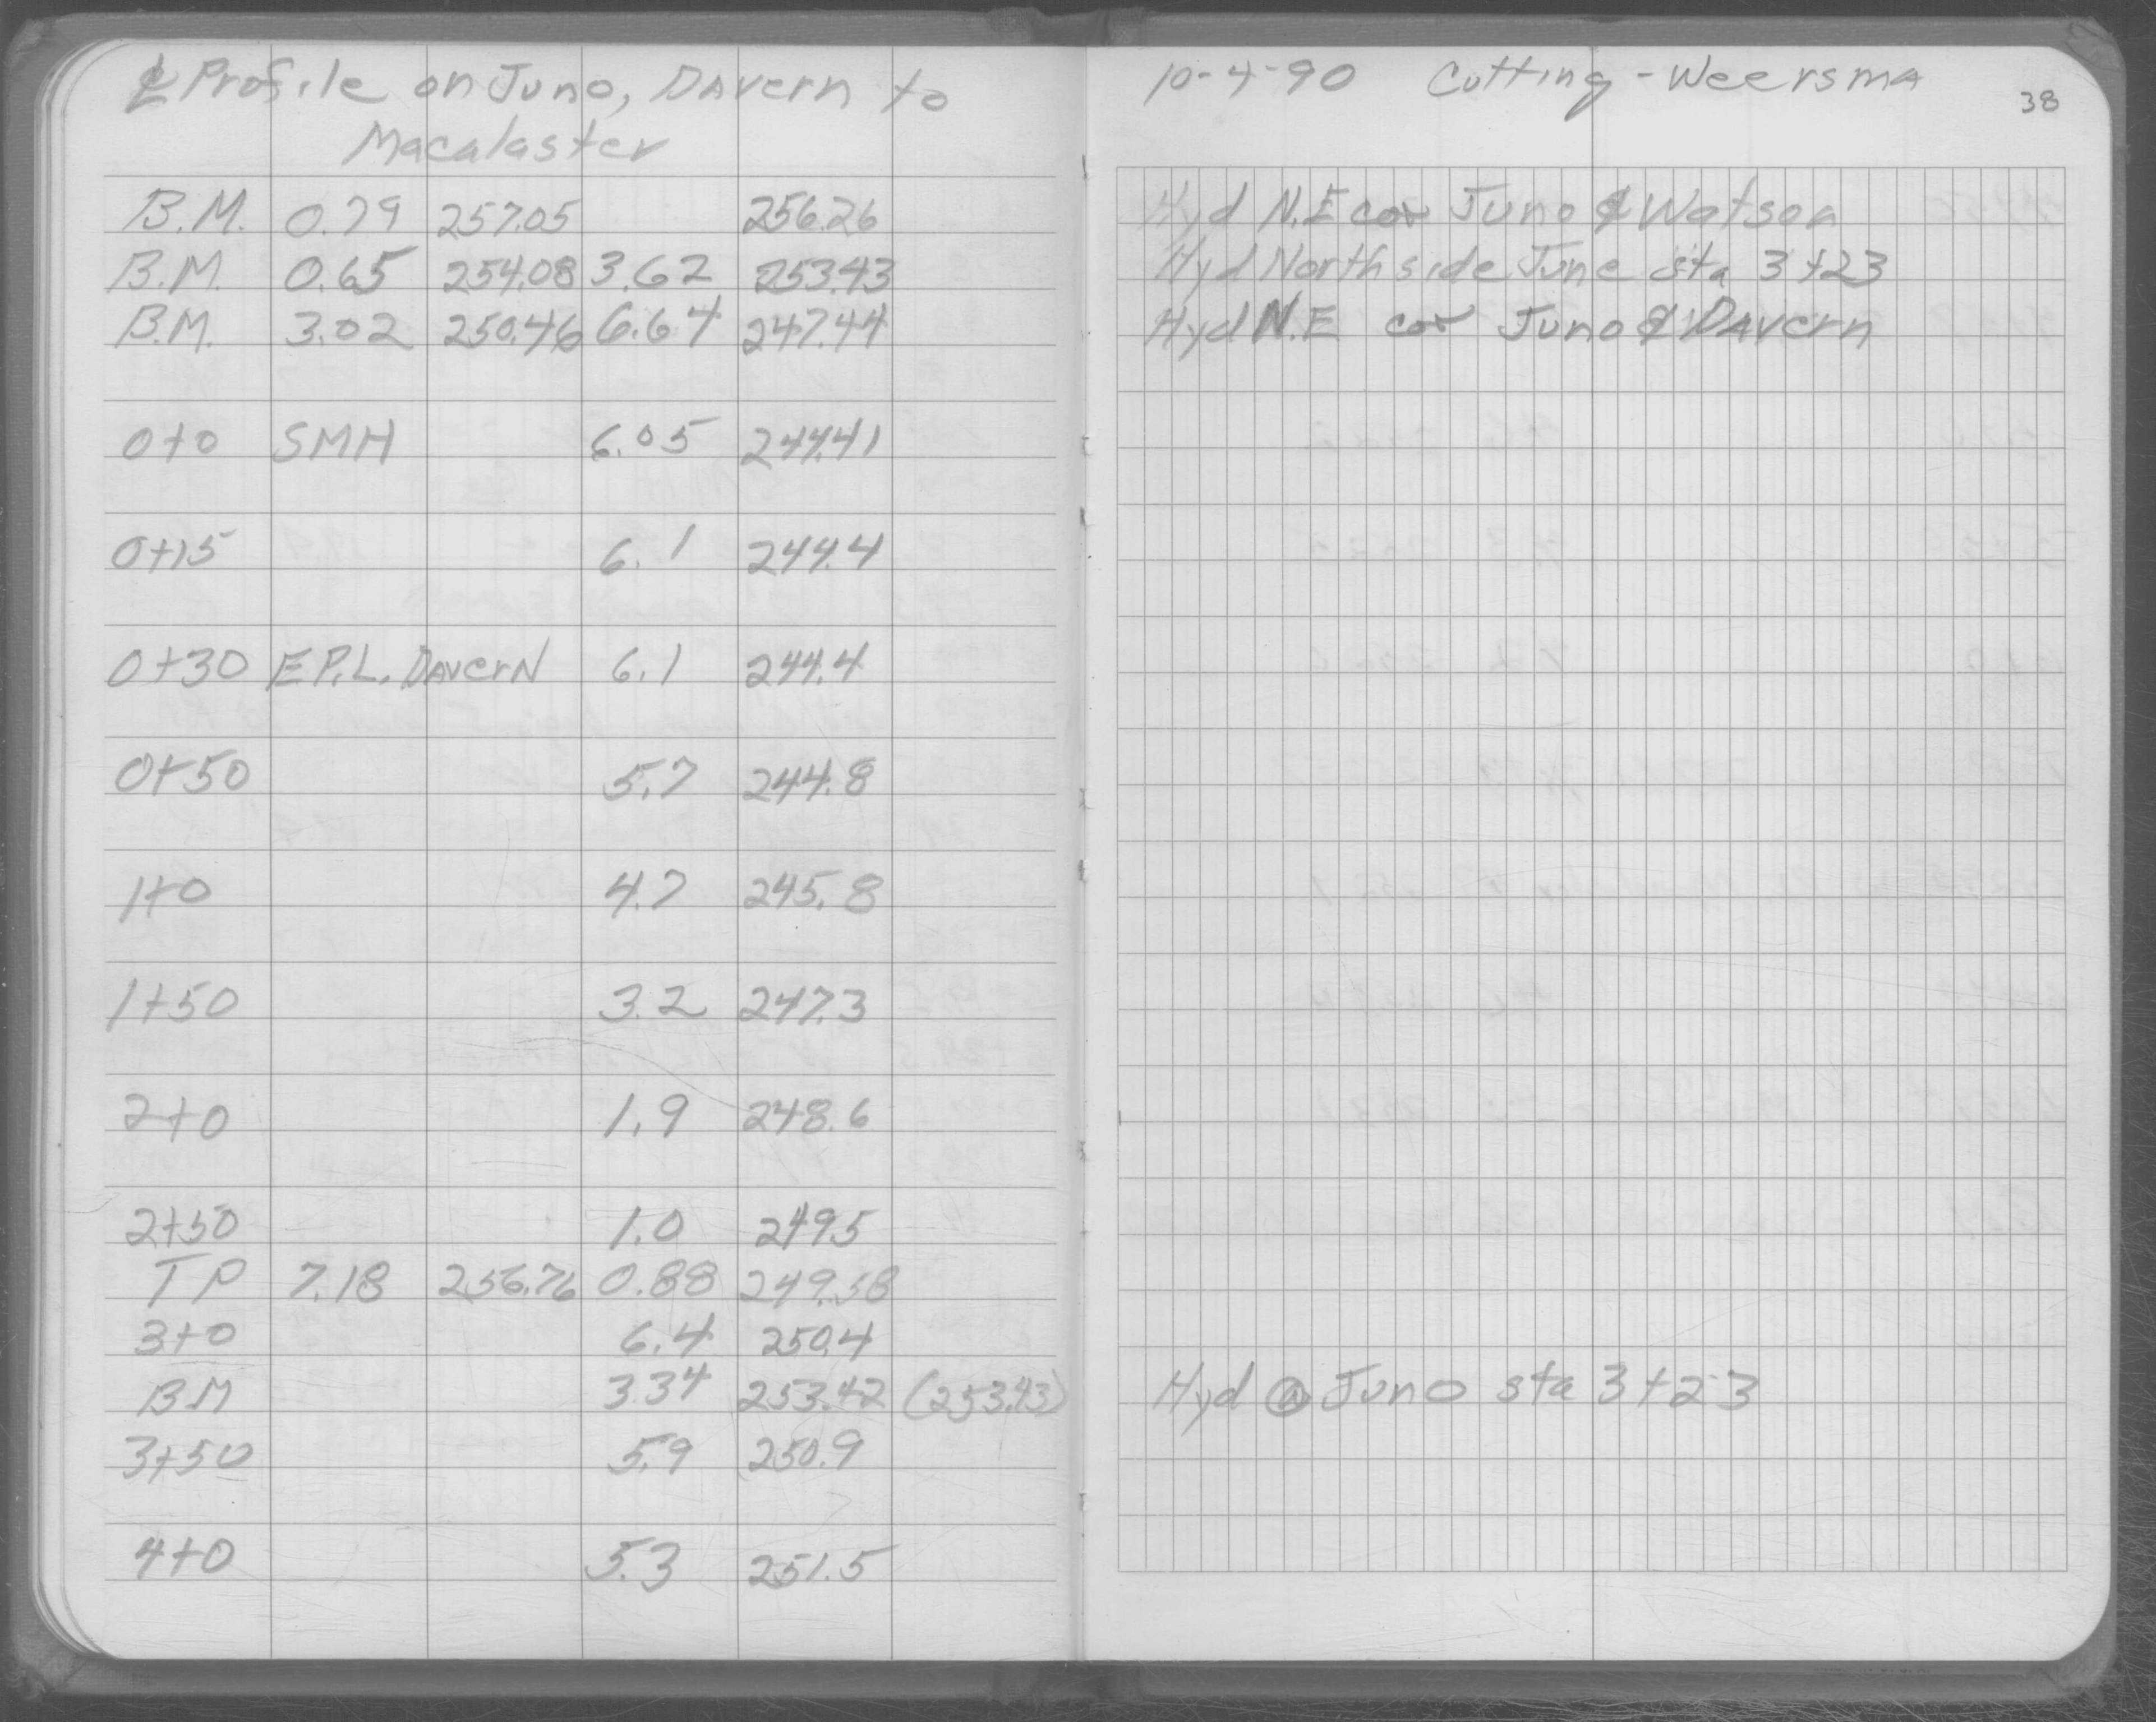 ℄ Profile on Juno, Davern to
Macalaster
B.M. 0.79 257.05 256.26
B.M. 0.65 254.08 3.62 253.43
B.M. 3.02 250.46 6.64 247.44
0+0 SMH 6.05 244.41
0+15 6.1 244.4
0+30 E P.L. Davern 6.1 244.4
0+50 5.7 244.8
1+0 4.7 245.8
1+50 3.2 247.3
2+0 1.9 248.6
2+50 1.0 249.5
TP 7.18 256.76 0.88 249.58
3+0 6.4 250.4
BM 3.34 253.42 (253.43)
3+50 5.9 250.9
4+0 5.3 251.5
10-4-90 Cutting - Weersma
38
Hyd N.E cor Juno & Watson
Hyd North side June sta 3+23
Hyd N.E cor Juno & Davern
Hyd @ Juno sta 3+23